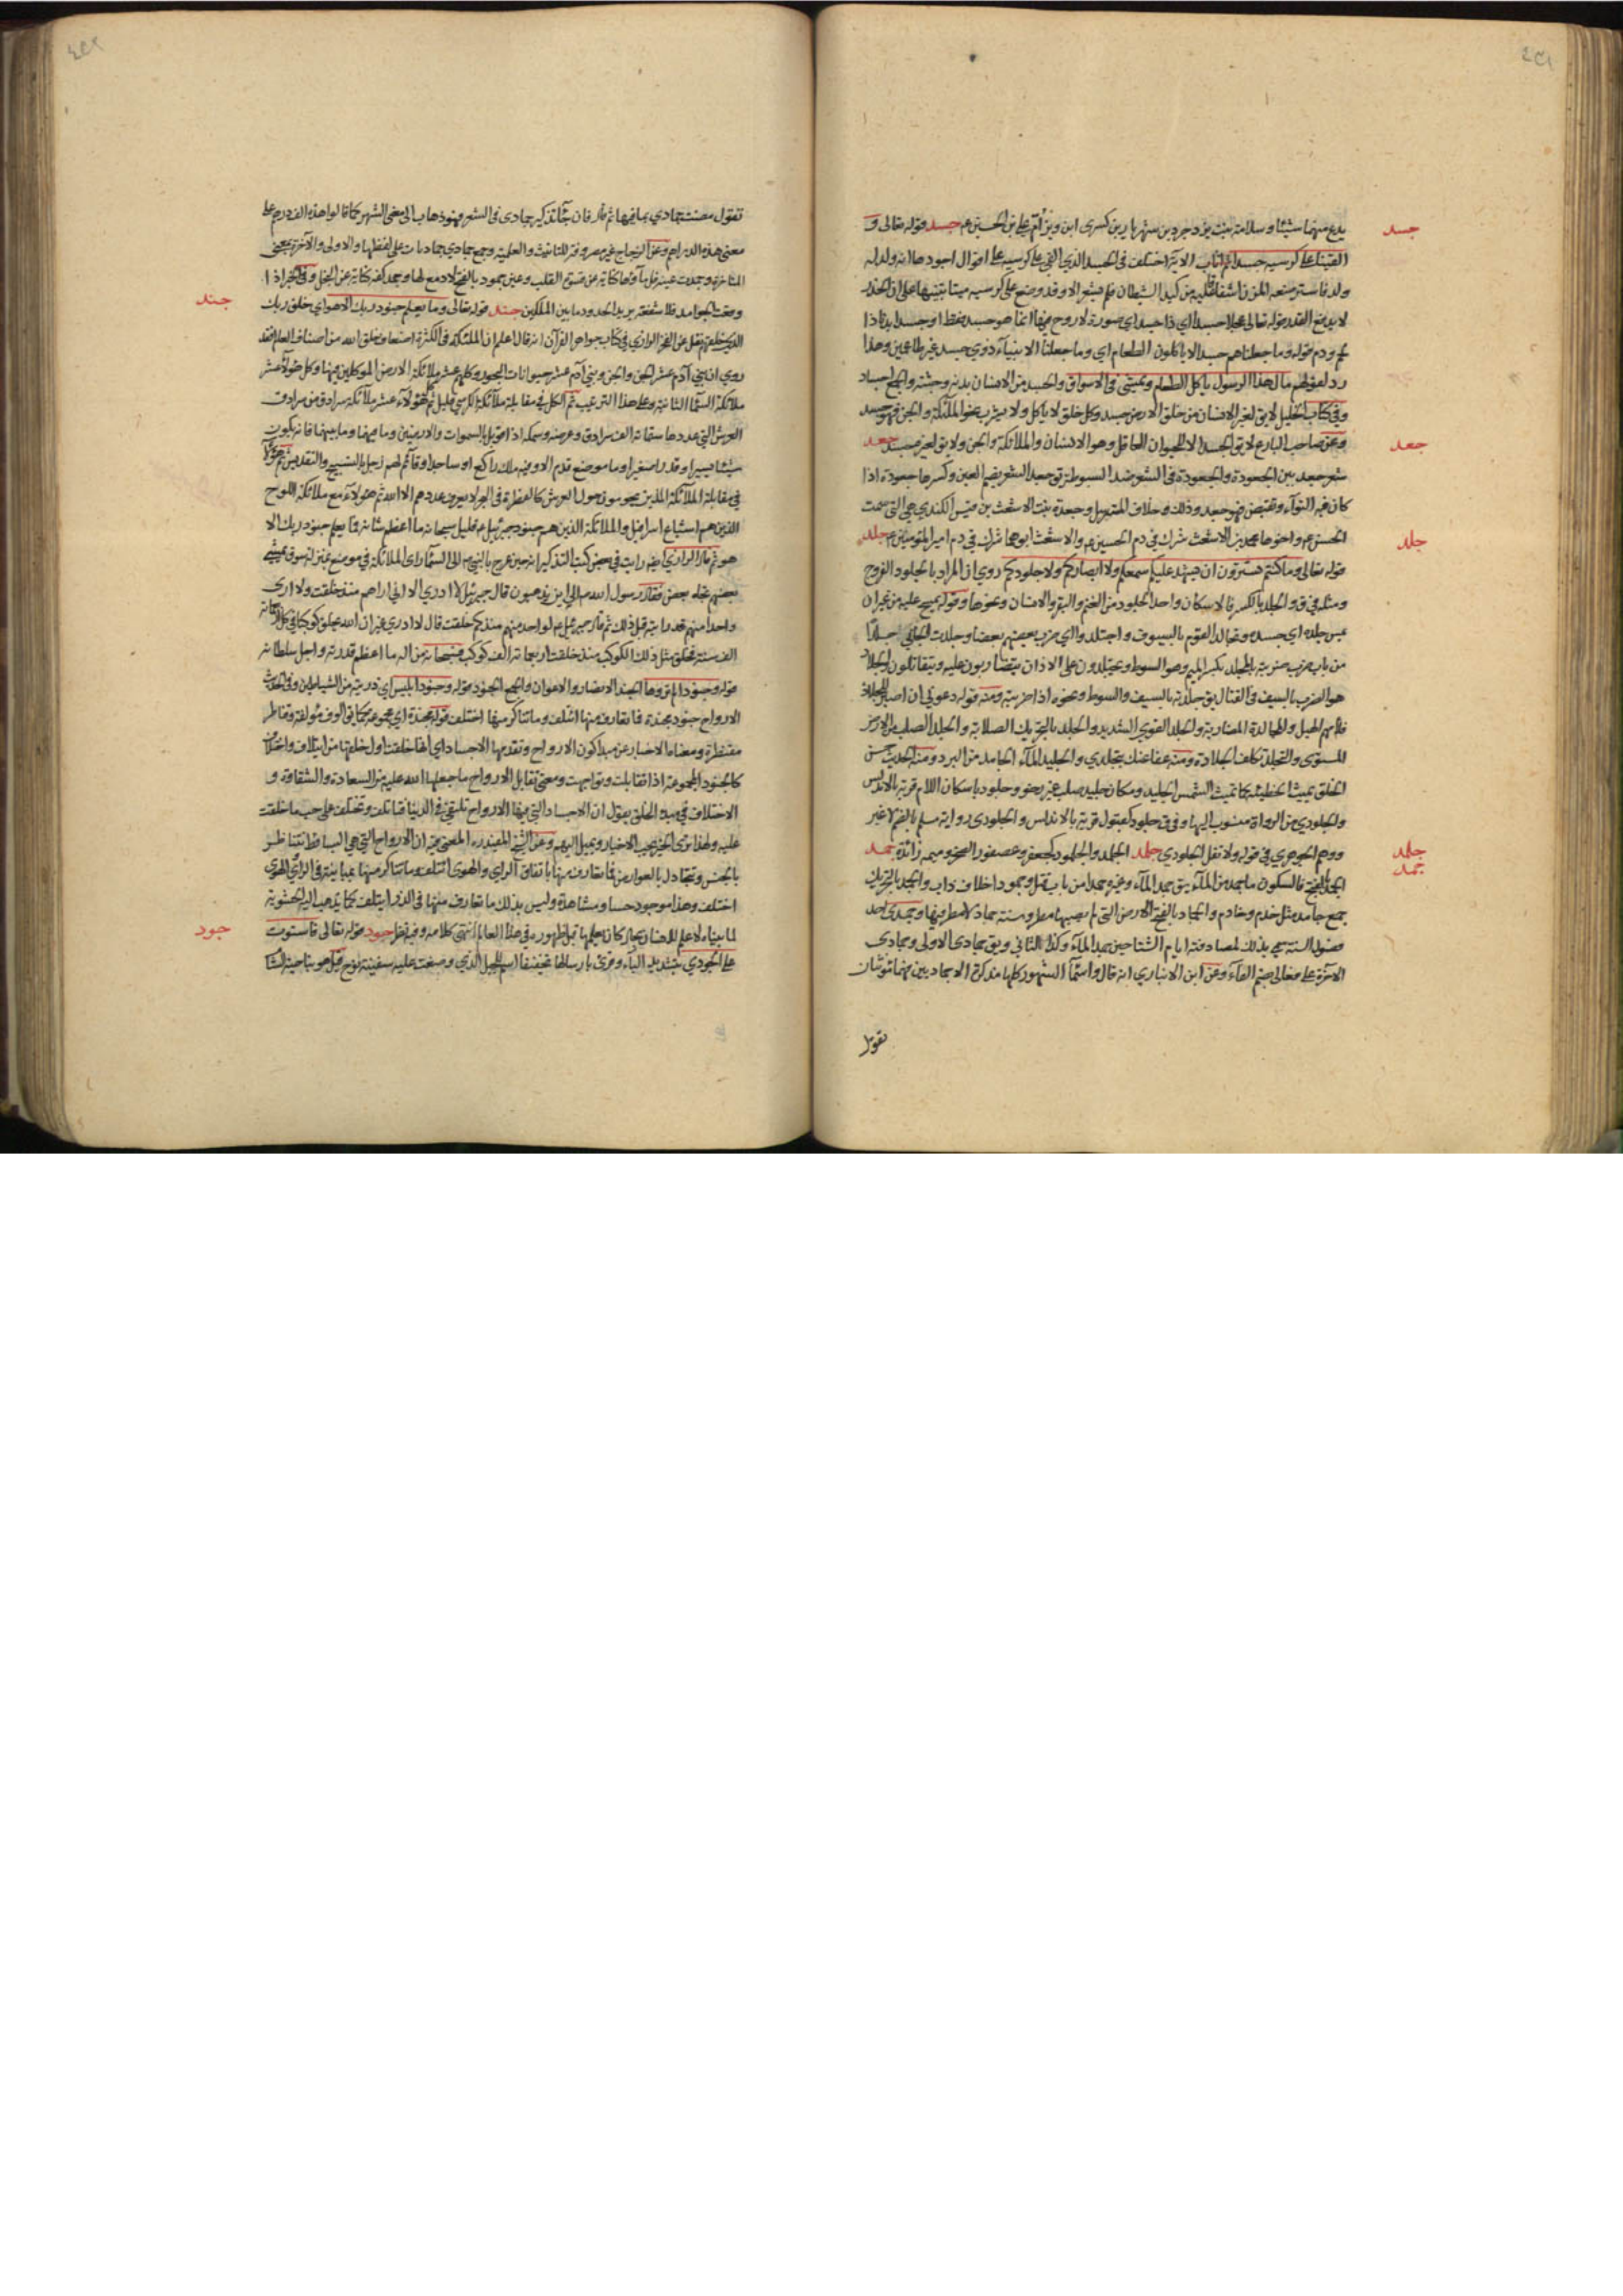 ٤٥١
يدع منهما شيئا وسلامة بنت يزدجرد بن شهريار بن كسرى ابن ويز أم علي بن الحسين ع جسد قوله تعالى و
جسد
القينا على كرسيه جسدا ثم اناب الاية اختلف في الجسد الذي القي على كرسيه على اقوال اجودها انه ولد له
ولد فاسترضعه المزن اشفاقا عليه من كيد الشيطان فلم يشعر الا وقد وضع على كرسيه ميتا تنبيها على ان الحذر
لا يدفع القدر قوله تعالى عجلا جسدا اي ذا جسد اي صورة لا روح فيها انما هو جسد فقط او جسدا بدنا ذا
لحم ودم قوله وما جعلناهم جسدا لا ياكلون الطعام اي وما جعلنا الانبياء ذوي جسد غير طاعمين وهذا
رد لقولهم مال هذا الرسول ياكل الطعام ويمشي في الاسواق والجسد من الانسان بدنه وجثته والجمع اجساد
وفي كتاب الخليل لا يق لغير الانسان من خلق الارض جسد وكل خلق لا ياكل ولا يشرب نحو الملائكة والجن فهو جسد
وعن صاحب البارع لا يق الجسد الا للحيوان العاقل وهو الانسان والملائكة والجن ولا يق لغيره جسد جعد
جعد
شعر جعد بين الجعودة والجعودة في الشعر ضد السبوطة يق جعد الشعر بضم العين وكسرها جعودة اذا
كان فيه التواء وتقبض فهو جعد وذلك خلاف المسترسل وجعدة بنت الاشعث بن قيس الكندي هي التي سمت
الحسن ع واخوها محمد بن الاشعث شرك في دم الحسين ع والاشعث ابوهما شرك في دم امير المؤمنين ع جلد
جلد
قوله تعالى وما كنتم تستترون ان يشهد عليكم سمعكم ولا ابصاركم ولا جلودكم روي ان المراد بالجلود الفروج
ومثله في ق والجلد بالكسر فالاسكان واحد الجلود من الغنم والبقر والانسان ونحوها وقوله يمسح عليه من غير ان
يمس جلده اي جسده وتجالد القوم بالسيوف واجتلدوا اي ضرب بعضهم بعضا وجلدت الجاني جلدا
من باب ضرب ضربته بالمجلد بكسر الميم وهو السوط ويجتلدون على الاذان يتضاربون عليه ويتقاتلون والجلاد
هو الضرب بالسيف في القتال يق جلدته بالسيف والسوط ونحوه اذا ضربته ومنه قوله دعوني ان اصبر للجلاد
فلامهم الهبل والمجالدة المضاربة والجلد القوي الشديد والجلد بالتحريك الصلابة والجلد الصلب من الارض
المستوي والتجلد تكلف الجلادة ومنه عفا عنك تجلدي والجليد الماء الجامد من البرد ومنه الحديث حسن
الخلق يميث الخطيئة كما تميث الشمس الجليد ومكان جليد صلب غير رخو وجلود باسكان اللام قرية بالاندلس
والجلودي من الرواة منسوب اليها وفي ق جلود كقبول قرية بالاندلس والجلودي رواية مسلم بالضم لا غير
ووهم الجوهري في قوله ولا تقل الجلودي جلمد الجلمد والجلمود كجعفر وعصفور الصخر وميمه زائدة جمد
جلمد
جمد
الجمد بالفتح فالسكون ما جمد من الماء يق جمد الماء وغيره جمدا من باب قتل وجمودا خلاف ذاب والجمد بالتحريك
جمع جامد مثل خدم وخادم والجماد بالفتح الارض التي لم يصبها مطر وسنة جماد لا مطر فيها وجمادى احد
فصول السنة سمي بذلك لمصادفته ايام الشتا حين جمد الماء وكذا الثاني ويق جمادى الاولى وجمادى
الاخرة على فعالى بضم الفاء وعن ابن الانباري انه قال واسماء الشهور كلها مذكرة الا جماديين فهما مؤنثان
تقول
٤٥٢
تقول مضت جمادي بما فيها ثم قال فان جاء تذكير جمادى في الشعر فهو ذهاب الى معنى الشهر كما قالوا هذه الف درهم على
معنى هذه الدراهم وعن الزجاج غير مصروفة للتانيث والعلمية وجمع جمادي جماديات على لفظها والاولى والاخرة بمعنى
المتاخرة وجمدت عينه قل ماؤها كناية عن قسوة القلب وعين جمود بالفتح لا دمع لها وجمد كفه كناية عن البخل وفي الخبر اذا
وقعت الجوامد فلا شفعة يريد الحدود ما بين الملكين جند قوله تعالى وما يعلم جنود ربك الا هو اي خلق ربك
جند
الذي خلقهم نقل عن الفخر الرازي في كتاب جواهر القرآن انه قال اعلم ان الملئكة في الكثرة اضعاف خلق الله من اصناف العالم فقد
روي ان بني آدم عشر الجن والجن وبني آدم عشر حيوانات البحور وكلهم عشر ملائكة الارض الموكلين بها وكل هؤلاء عشر
ملائكة السماء الثانية وعلى هذا الترتيب ثم الكل في مقابلة ملائكة الكرسي قليل ثم هؤلاء عشر ملائكة سرادق من سرادق
العرش التي عددها ستمائة الف سرادق وعرضه وسمكه اذا قوبل بالسموات والارضين وما فيها وما بينها فانه يكون
شيئا يسيرا وقدرا صغيرا وما موضع قدم الا وفيه ملك راكع او ساجد او قائم لهم زجل بالتسبيح والتقديس ثم هؤلاء
في مقابلة الملائكة الذين يحومون حول العرش كالقطرة في البحر لا يعرف عددهم الا الله ثم هؤلاء مع ملائكة اللوح
الذين هم اشياع اسرافيل والملائكة الذين هم جنود جبرئيل ع قليل سبحانه ما اعظم شانه وما يعلم جنود ربك الا
هو ثم قال الرازي ايضا رايت في بعض كتب التذكير انه حين عرج بالنبي ص الى السماء راى الملائكة في موضع بمنزلة سوق يمشي
بعضهم تجاه بعض فقال رسول الله ص الى اين يذهبون قال جبرئيل لا ادري الا اني اراهم منذ خلقت ولا ارى
واحدا منهم قد رايته قبل ذلك ثم قال جبرئيل ع لواحد منهم منذ كم خلقت قال لا ادري غير ان الله يخلق كوكبا في كل اربعمائة
الف سنة فخلق مثل ذلك الكوكب منذ خلقت اربعمائة الف كوكب فسبحانه من اله ما اعظم قدرته واجل سلطانه
قوله وجنودا لم تروها الجند الانصار والاعوان والجمع الجنود قوله وجنود ابليس اي ذريته من الشياطين وفي الحديث
الارواح جنود مجندة فما تعارف منها ائتلف وما تناكر منها اختلف قوله مجندة اي مجموعة كما يق الوف مؤلفة وقناطير
مقنطرة ومعناه الاخبار عن مبدا كون الارواح وتقدمها الاجساد اي انها خلقت اول خلقها من ايتلاف واختلاف
كالجنود المجموعة اذا تقابلت وتواجهت ومعنى تقابل الارواح ما جعلها الله عليه من السعادة والشقاوة و
الاختلاف في مبدء الخلق يقول ان الاجساد التي فيها الارواح تلتقي في الدنيا فتاتلف وتختلف على حسب ما خلقت
عليه ولهذا ترى الخير يحب الاخيار ويميل اليهم وعن الشيخ المفيد ره المعنى فيه ان الارواح التي هي البسائط تتناظر
بالجنس وتتجادل بالعوارض فما تعارف منها باتفاق الراي والهوى ائتلف وما تناكر منها بمباينة في الراي والهوى
اختلف وهذا موجود حسا ومشاهدة وليس بذلك ما تعارف منها في الذر ايتلف كما يذهب اليه الحشوية
لما بيناه لا علم للانسان بحال كان عليها قبل ظهوره في هذا العالم انتهى كلامه وفيه نظر جود قوله تعالى فاستوت
جود
على الجودي بتشديد الياء وقرئ بارسالها تخفيفا اسم للجبل الذي وضعت عليه سفينة نوح قيل هو بناحية الشا